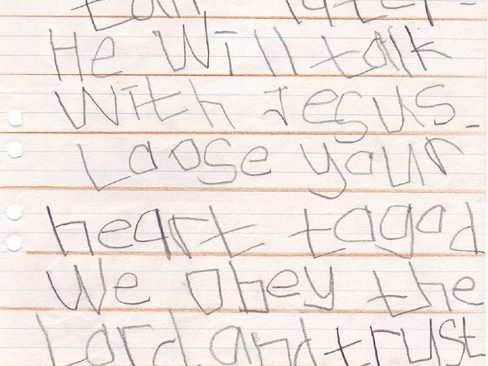 He Will talk
With Jesus.
Loose your
heart togod
We obey the
Lord. and trust